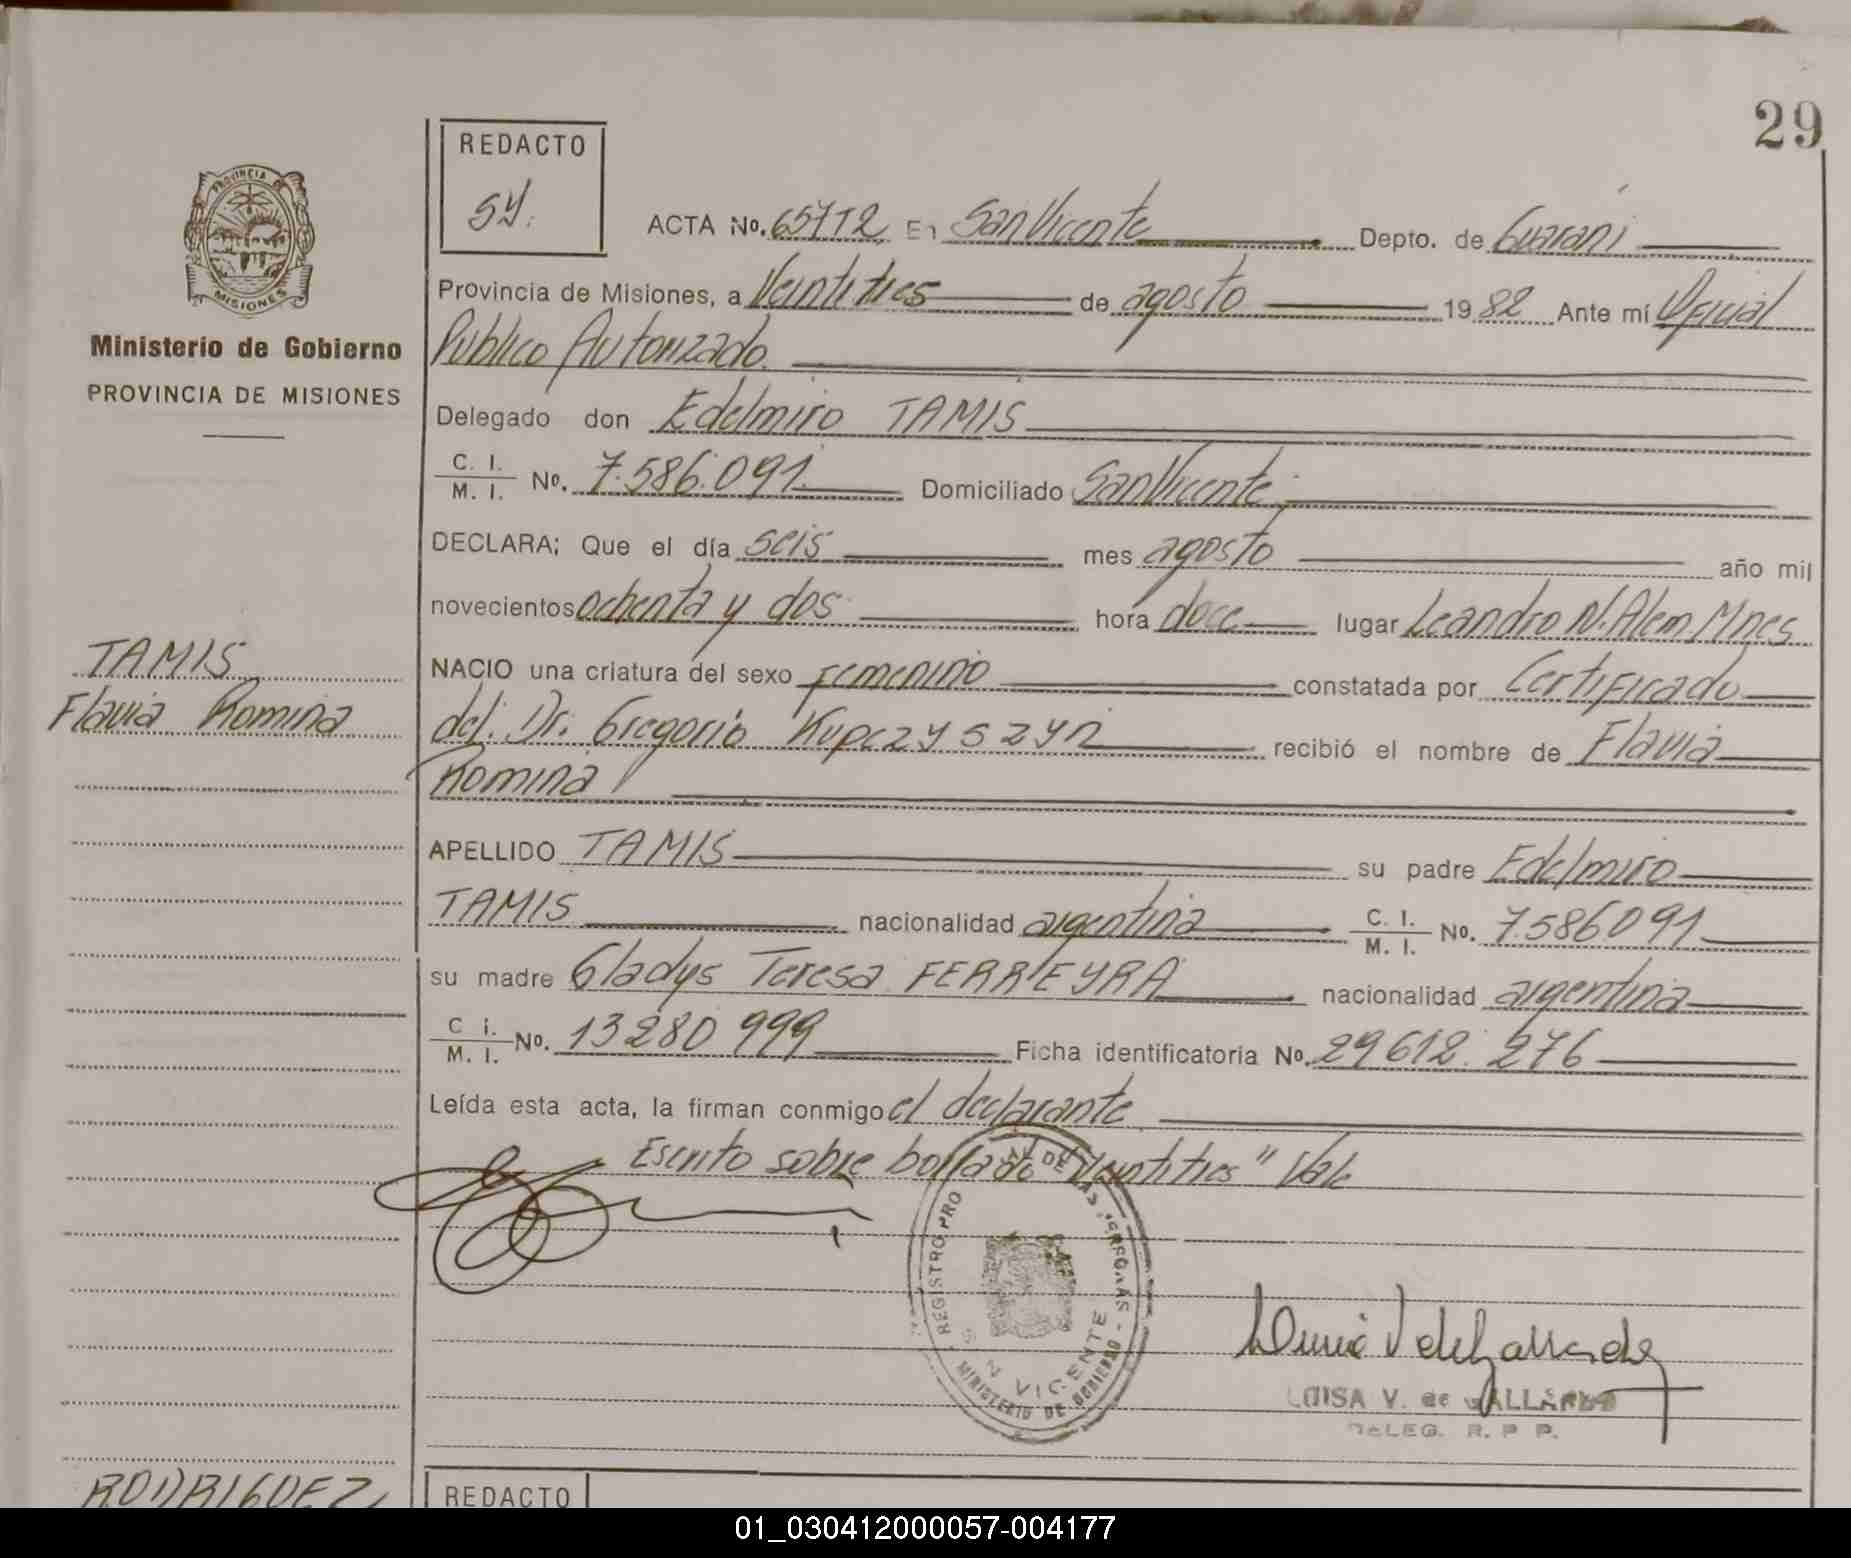 29
REDACTO
SY.
PROVINCIA DE
MISIONES
Ministerio de Gobierno
PROVINCIA DE MISIONES
ACTA No. En San Vicente Depto. de Guaraní
Provincia de Misiones, a Veintitres de agosto 1982 Ante mí Oficial
Público Autorizado.
Delegado don Edelmiro TAMIS
C. I.
M. I. No. 7.586.091. Domiciliado San Vicente
DECLARA; Que el día seis mes agosto año mil
novecientos ochenta y dos hora doce lugar Leandro N. Alem. Mnes
TAMIS
Flavia Romina
NACIO una criatura del sexo femenino constatada por Certificado
del. Dr. Gregorio Kupczyszyn recibió el nombre de Flavia
Romina
APELLIDO TAMIS su padre Edelmiro
TAMIS nacionalidad argentina C. I.
M. I. No. 7.586091
su madre Gladys Teresa FERREYRA nacionalidad argentina
C i.
M. I. No. 13280 999 Ficha identificatoria No. 29612.276
Leída esta acta, la firman conmigo el declarante
Escrito sobre borrado "Veintitres" Vale
REGISTRO PRO AL DE LAS PERSONAS - SAN VICENTE
MINISTERIO DE GOBIERNO
LUISA V. de GALLARDO
DELEG. R. P. P.
RODRIGUEZ
REDACTO
01_030412000057-004177